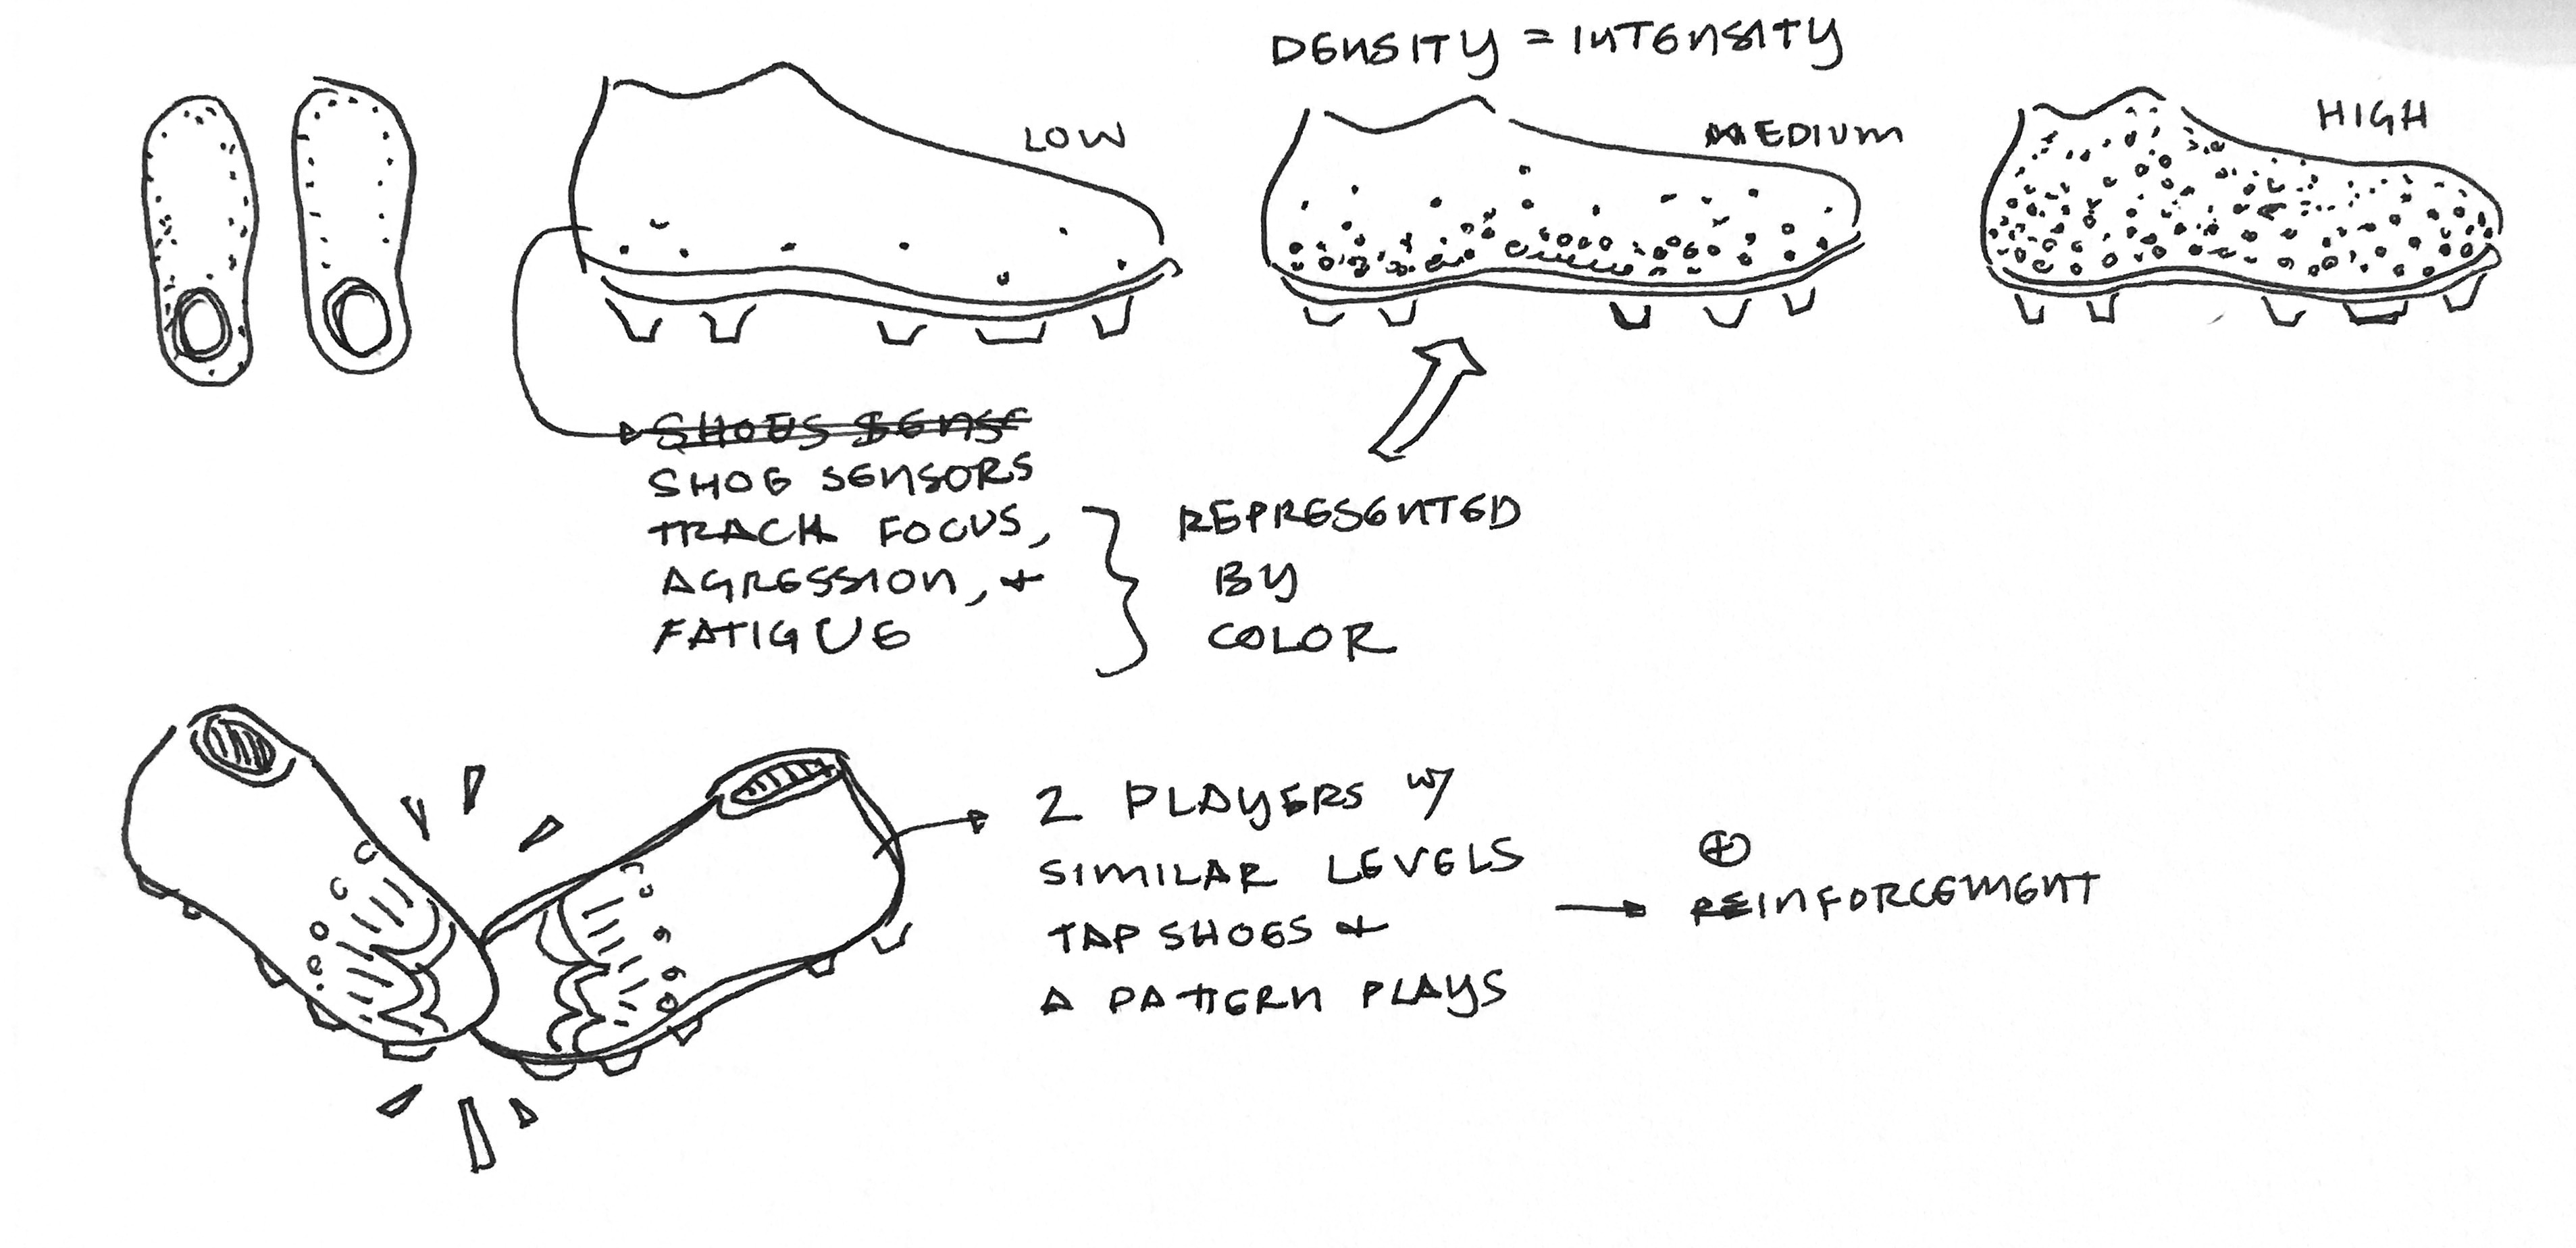 DENSITY = INTENSITY
LOW
MEDIUM
HIGH
SHOES SENS
SHOE SENSORS
TRACK FOCUS,
AGRESSION, +
FATIGUE
REPRESENTED
BY
COLOR
2 PLAYERS w/
SIMILAR LEVELS
TAP SHOES +
A PATTERN PLAYS
⊕
REINFORCEMENT